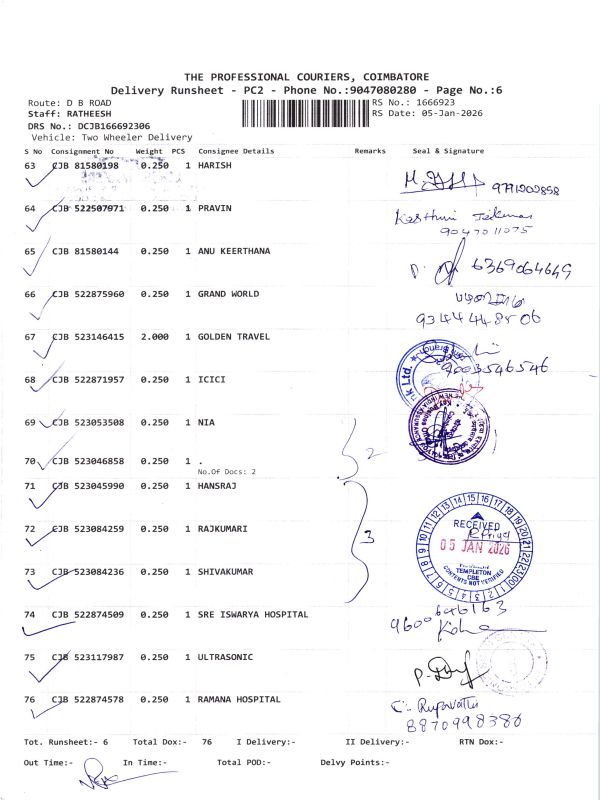 THE PROFESSIONAL COURIERS, COIMBATORE
Delivery Runsheet - PC2 - Phone No.:9047080280 - Page No.:6
Route: D B ROAD
Staff: RATHEESH
DRS No.: DCJB166692306
Vehicle: Two Wheeler Delivery
RS No.: 1666923
RS Date: 05-Jan-2026
S No Consignment No Weight PCS Consignee Details Remarks Seal & Signature
63 CJB 81580198 0.250 1 HARISH
64 CJB 522507971 0.250 1 PRAVIN
9047011075
65 CJB 81580144 0.250 1 ANU KEERTHANA
6369064649
66 CJB 522875960 0.250 1 GRAND WORLD
9344448506
67 CJB 523146415 2.000 1 GOLDEN TRAVEL
9003546546
68 CJB 522871957 0.250 1 ICICI
69 CJB 523053508 0.250 1 NIA
2
70 CJB 523046858 0.250 1 .
No.Of Docs: 2
71 CJB 523045990 0.250 1 HANSRAJ
72 CJB 523084259 0.250 1 RAJKUMARI
3
RECEIVED
05 JAN 2026
TEMPLETON
CBE
CONTENTS NOT VERIFIED
73 CJB 523084236 0.250 1 SHIVAKUMAR
74 CJB 522874509 0.250 1 SRE ISWARYA HOSPITAL
9600646163
75 CJB 523117987 0.250 1 ULTRASONIC
76 CJB 522874578 0.250 1 RAMANA HOSPITAL
8870998386
Tot. Runsheet:- 6 Total Dox:- 76 I Delivery:- II Delivery:- RTN Dox:-
Out Time:- In Time:- Total POD:- Delvy Points:-